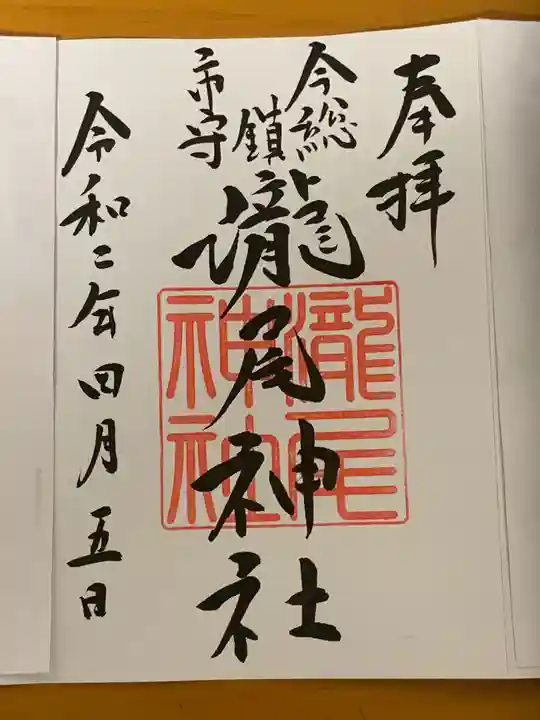 奉拝
今市
総鎮守
瀧尾神社
瀧尾
神社
令和二年四月五日